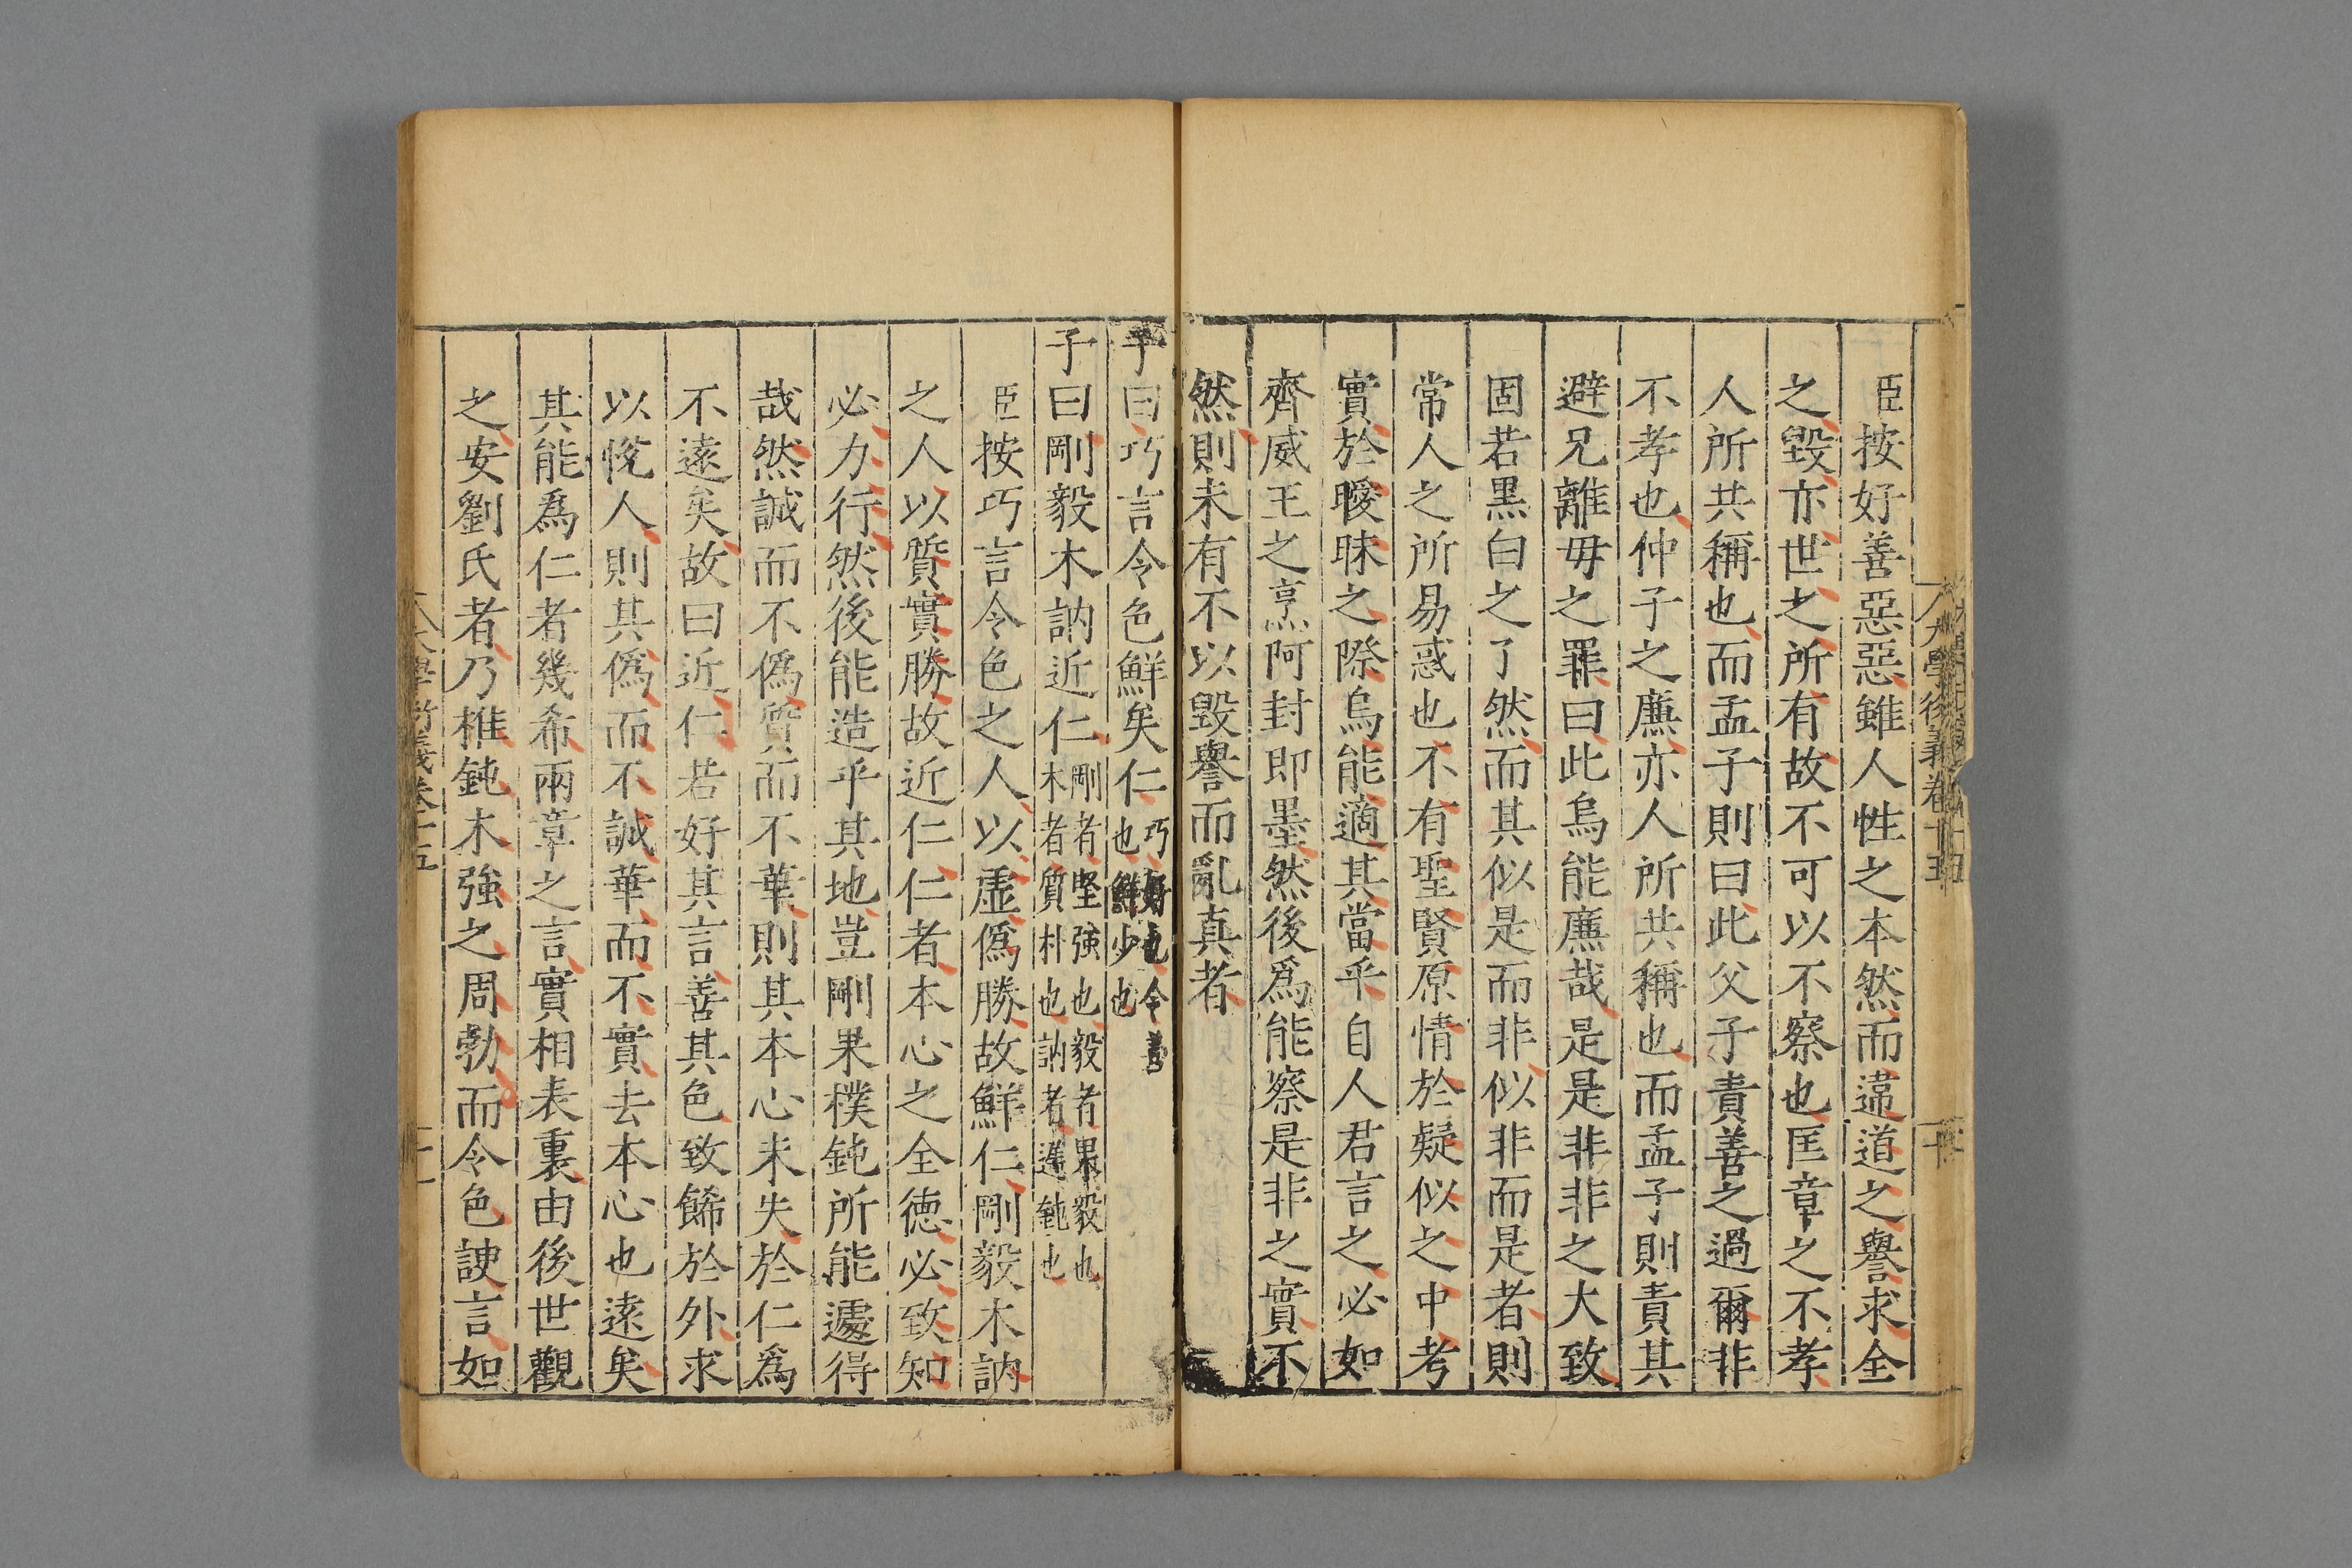 臣按好善惡惡雖人性之本然而違道之譽求全
之毀亦世之所有故不可以不察也匡章之不孝
人所共稱也而孟子則曰此父子責善之過爾非
不孝也仲子之廉亦人所共稱也而孟子則責其
避兄離母之罪曰此烏能廉哉是是非非之大致
固若黑白之了然而其似是而非似非而是者則
常人之所易惑也不有聖賢原情於疑似之中考
實於曖昧之際烏能適其當乎自人君言之必如
齊威王之烹阿封即墨然後爲能察是非之實不
然則未有不以毀譽而亂真者
子曰巧言令色鮮矣仁巧好也令善
也鮮少也
子曰剛毅木訥近仁剛者堅強也毅者果毅也
木者質朴也訥者遲鈍也
臣按巧言令色之人以虛僞勝故鮮仁剛毅木訥
之人以質實勝故近仁仁者本心之全德必致知
必力行然後能造乎其地豈剛果樸鈍所能遽得
哉然誠而不僞質而不華則其本心未失於仁爲
不遠矣故曰近仁若好其言善其色致餙於外求
以悅人則其僞而不誠華而不實去本心也遠矣
其能爲仁者幾希兩章之言實相表裏由後世觀
之安劉氏者乃椎鈍木強之周勃而令色諛言如
大學衍義卷十五